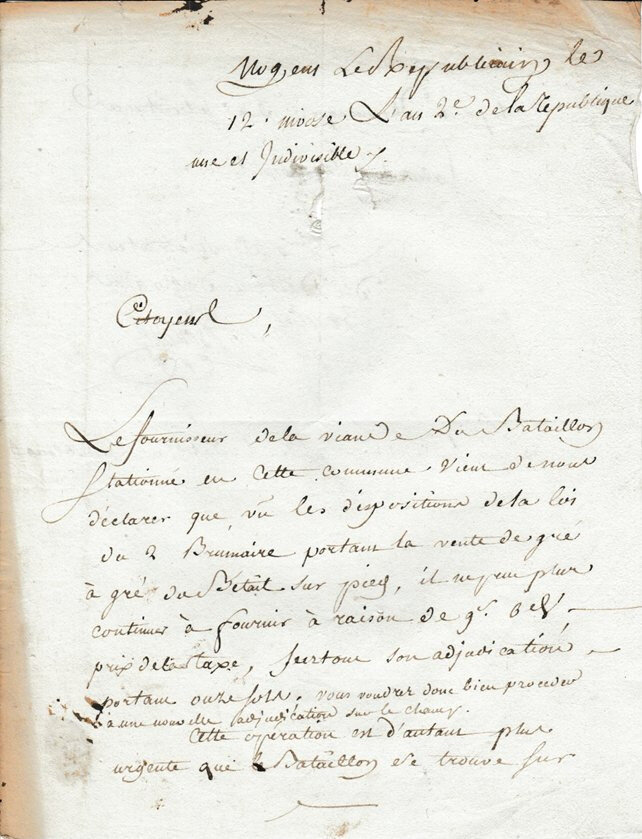 Nogent Le Republicain le
12 nivose L'an 2e de la Republique
une et Indivisible
Citoyens,
Le fournisseur de la viande Du Bataillon
stationné en cette commune vient de nous
déclarer que, vû les dispositions de la loi
du 2 Brumaire portant la vente de gré
à gré du Bétail sur pied, il ne peut plus
continuer à fournir à raison de 9s.
prix de la taxe, surtout son adjudication
portant onze sols. vous voudrez donc bien proceder
à une nouvelle adjudication sur le champ.
Cette opération est d'autant plus
urgente que le Bataillon se trouve sur